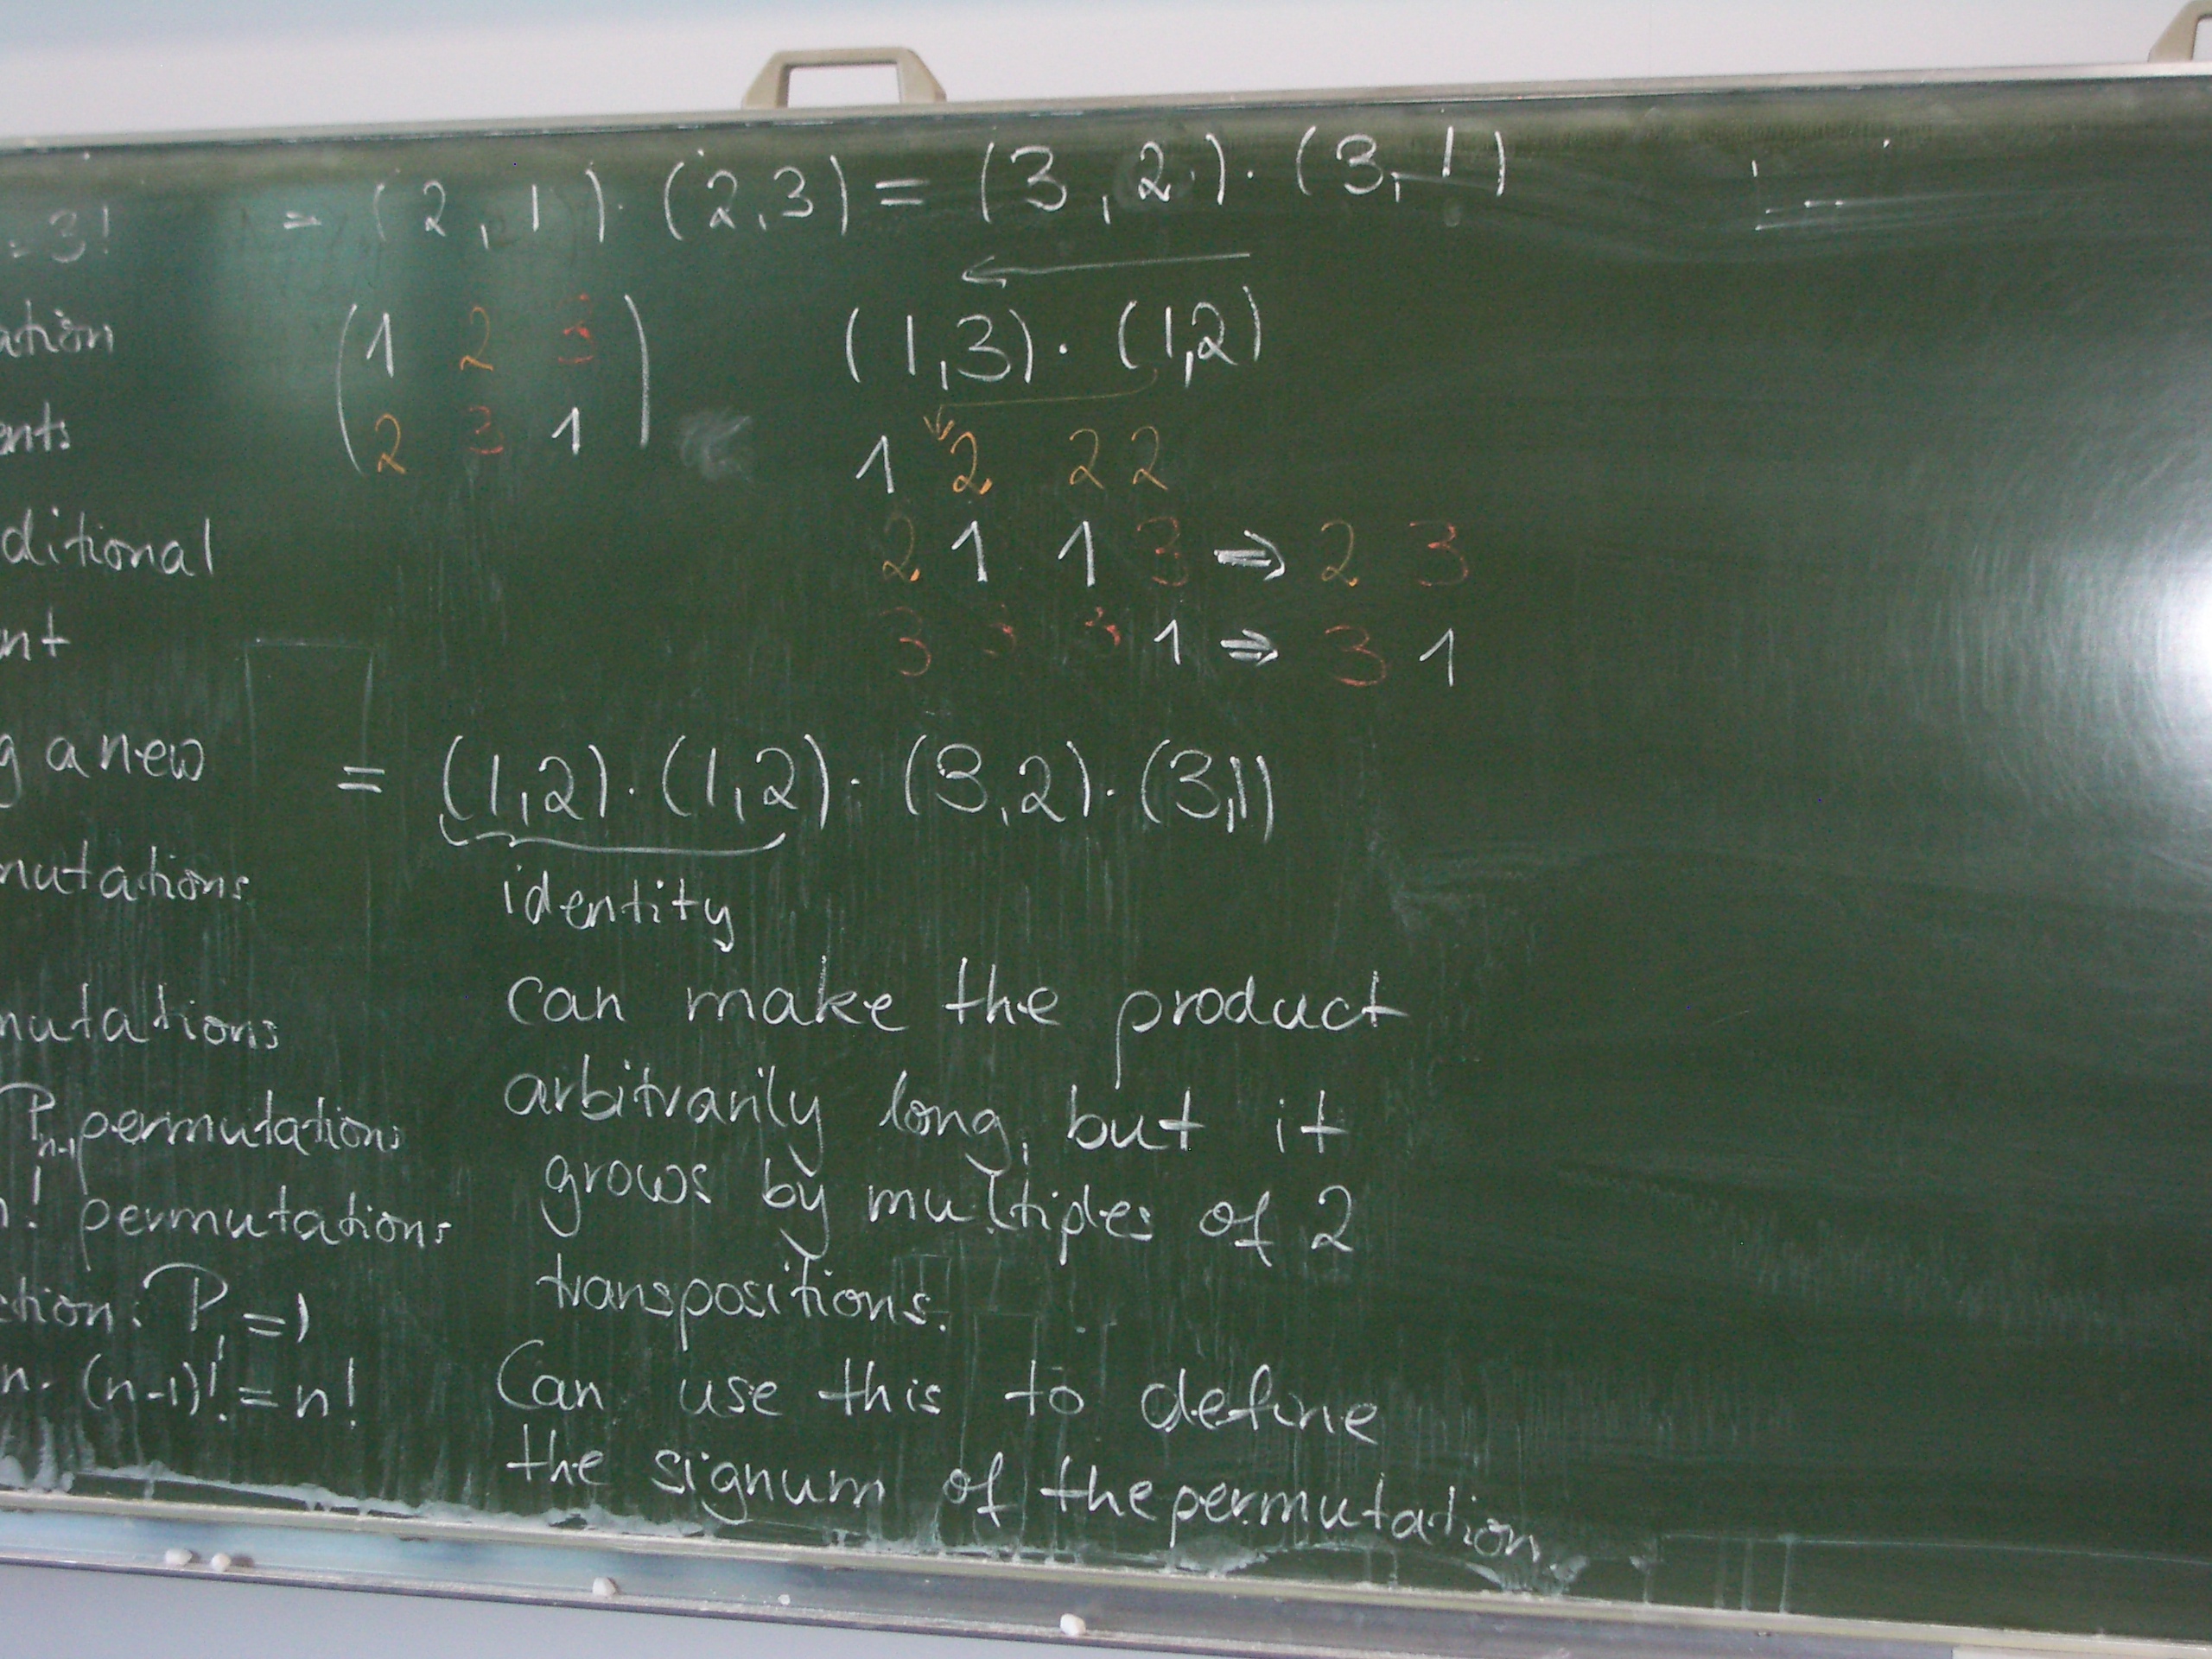 = 3!
= (2,1) · (2,3) = (3,2) · (3,1)
(1 2 3
2 3 1)
(1,3) · (1,2)
1 2 2 2
2 1 1 3 ⇒ 2 3
3 3 3 1 ⇒ 3 1
= (1,2) · (1,2) · (3,2) · (3,1)
identity
can make the product
arbitrarily long, but it
grows by multiples of 2
transpositions.
Can use this to define
the signum of the permutation.
ation
ents
ditional
nt
g a new
mutations
mutations
Pn-1 permutations
n! permutations
ction: P1 = 1
n · (n-1)! = n!